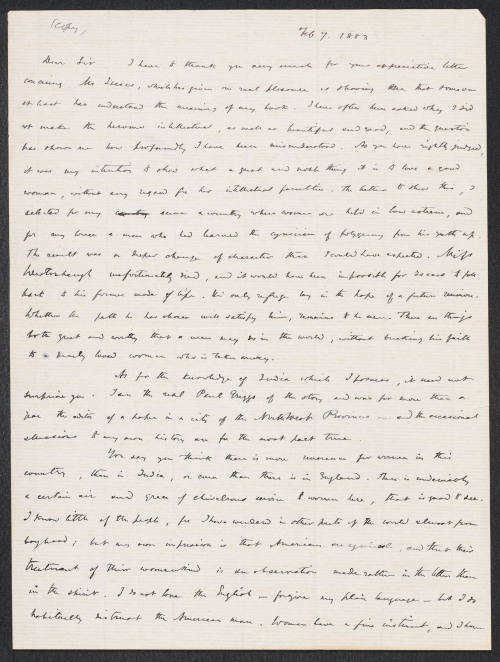 (Copy)
Feb 7. 1883
Dear Sir I have to thank you very much for your appreciative letter
concerning Mr Isaacs, which has given me real pleasure as showing that someone
at least has understood the meaning of my book. I have often been asked why I did
not make the heroine intellectual, as well as beautiful and good, and the question
has shown me how profoundly I have been misunderstood. As you have rightly judged,
it was my intention to show what a great and noble thing it is to love a good
woman, without any regard for her intellectual faculties. The better to show this, I
selected for my scene a country where women are held in low esteem, and
for my lover a man who had learned the cynicism of polygamy from his youth up.
The result was a deeper change of character than I could have expected. Miss
Westonhaugh unfortunately died, and it would have been impossible for Isaacs to fall
back to his former mode of life. His only refuge lay in the hope of a future reunion.
Whether the path he has chosen will satisfy him, remains to be seen. There are things
both great and worthy that a man may do in the world, without breaking his faith
to a dearly loved woman who is taken away.
As for the knowledge of India which I possess, it need not
surprise you. I am the real Paul Griggs of the story and was for more than a
year the editor of a paper in a city of the NorthWest Provinces — and the occasional
allusions to my own history are for the most part true.
You say you think there is more reverence for women in this
country, than in India, or even than there is in England. There is undeniably
a certain air and grace of chivalrous service to women here, that is good to see.
I know little of the people, for I have wandered in other parts of the world almost from
boyhood; but my own impression is that Americans are cynical, and that their
treatment of their womankind is an observation made rather in the letter than
in the spirit. I do not love the English — forgive my plain language — but I do
habitually distrust the American man. Women have a fine instinct, and I have